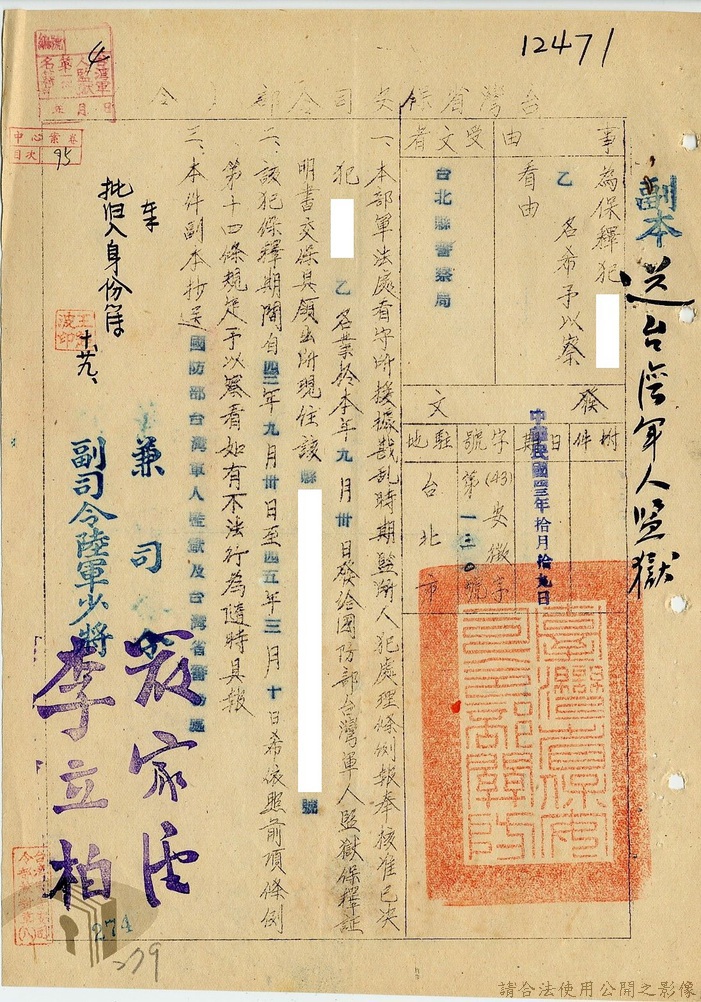 12471
副本
送台灣軍人監獄
台灣省保安司令部
事由
為保釋犯
乙名希予以察
看由
受文者
台北縣警察局
發文
附件
日期
中華民國四三年拾月拾九日
字號
(43)安徽字
第一三〇號
駐地
台北市
一、本部軍法處看守所援據戡乱時期監獄人犯處理條例報奉核准已決
犯
乙名業於本年九月卅日發給國防部台灣軍人監獄保釋証
明書交保具領出所現住該縣
號
二、該犯保釋期間自四三年九月卅日至四五年三月十日希依照前項條例
第十四條規定予以察看如有不法行為隨時具報
三、本件副本抄送國防部台灣軍人監獄及台灣省警務處
兼司令
副司令陸軍少將
李立柏
台灣軍人監獄
年月日
中心案卷
目次
95
批归入身份簿
274
279
請合法使用公開之影像